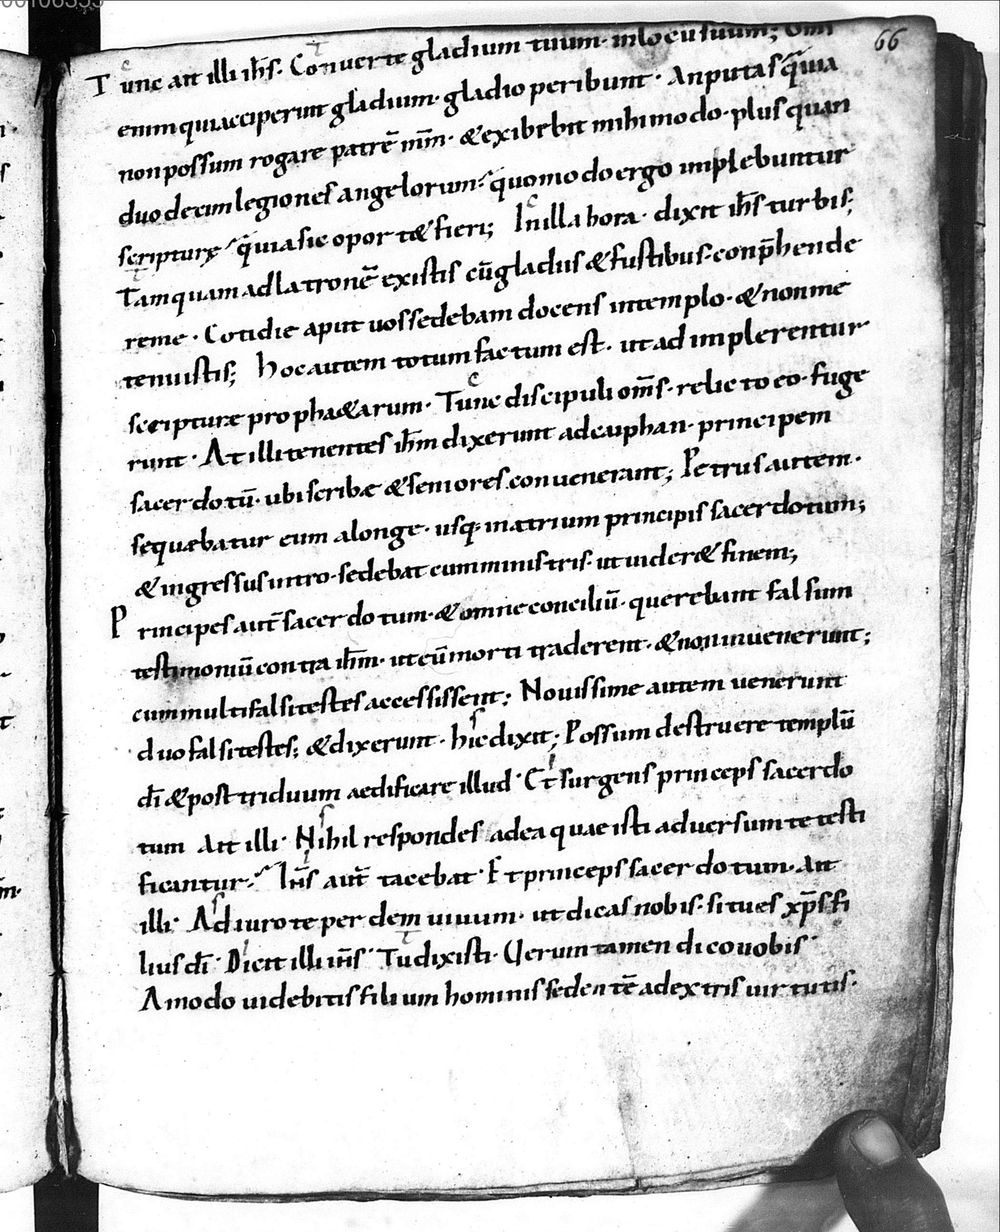 66
Tunc ait illi ihs̄. Conuerte gladium tuum. in locu suum; Om
enim qui acciperint gladium. gladio peribunt. An putas q̄uia
non possum rogare patrē m̄m. & exibebit mihi modo. plus quan
duodecim legiones angelorum. quomodo ergo implebuntur
scripturę q̄uia sic oport& fieri; In illa hora. dixit ihs̄ turbis;
Tamquam ad latronē existis cū gladiis & fustibus. conp̄hende
re me. Cotidie aput uos sedebam docens in templo. & non me
tenuistis; hoc autem totum factum est. ut adimplerentur
scripturae proph&arum. Tunc discipuli om̄s. relicto eo. fuge
runt. At illi tenentes ihm̄ dixerunt ad cayphan. principem
sacerdotū. ubi scribae & seniores conuenerant; Petrus autem.
sequebatur eum a longe. usq in atrium principis sacerdotum;
& ingressus intro. sedebat cum ministris. ut uider& finem;
Principes aut̄ sacerdotum. & omne conciliū. querebant falsum
testimoniū contra ihm̄. ut eū morti traderent. & non inuenerunt;
cum multi falsi testes accessissent; Nouissime autem uenerunt
duo falsi testes; & dixerunt. hic dixit; Possum destruere templū
dī & post triduum aedificare illud. Et surgens princeps sacerdo
tum ait illi. Nihil respondes ad ea quae isti aduersum te testi
ficantur. Ihs̄ aut̄ tacebat. Et princeps sacerdotum. ait
illi. Adiuro te per dem uiuum. ut dicas nobis. si tu es xp̄s fi
lius dī. Dicit illi ihs̄. Tu dixisti. Uerumtamen dico uobis.
Amodo uidebitis filium hominis sedentē a dextris uirtutis.